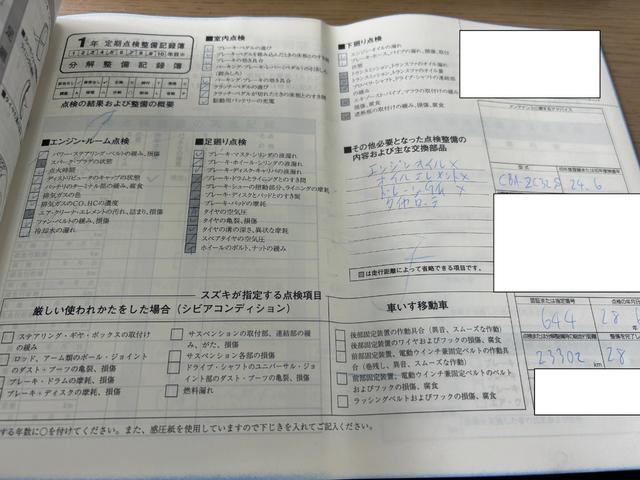 1年 定期点検整備記録簿
分解整備記録簿
点検の結果および整備の概要
■エンジン・ルーム点検
パワー・ステアリング・ベルトの緩み、損傷
スパーク・プラグの状態
点火時期
ディストリビュータのキャップの状態
バッテリのターミナル部の緩み、腐食
排気ガスの色
排気ガスのCO、HCの濃度
エア・クリーナ・エレメントの汚れ、詰まり、損傷
ファン・ベルトの緩み、損傷
冷却水の漏れ
■室内点検
ブレーキ・ペダルの遊び
ブレーキ・ペダルを踏み込んだときの床板とのすき間
ブレーキのきき具合
パーキング・ブレーキ・レバー(ペダル)の引きしろ
(踏みしろ)
パーキング・ブレーキのきき具合
クラッチ・ペダルの遊び
クラッチ・ペダルが切れたときの床板とのすき間
駆動用バッテリーの充電
■足廻り点検
ブレーキ・マスタ・シリンダの液漏れ
ブレーキ・ホイール・シリンダの液漏れ
ブレーキ・ディスク・キャリパの液漏れ
ブレーキ・ドラムとライニングとのすき間
ブレーキ・シューの摺動部分、ライニングの摩耗
ブレーキ・ディスクとパッドとのすき間
ブレーキ・パッドの摩耗
タイヤの空気圧
タイヤの亀裂、損傷
タイヤの溝の深さ、異状な摩耗
スペアタイヤの空気圧
ホイールのボルト、ナットの緩み
■下廻り点検
エンジン・オイルの漏れ
ブレーキ・ホース、パイプの漏れ、損傷、取付
状態
トランスミッション、トランスファのオイル漏れ
トランスミッション、トランスファのオイル量
プロペラ・シャフト、ドライブ・シャフトの連結部
の緩み
エキゾースト・パイプ、マフラの取付けの緩み、
損傷、腐食
遮熱板の取付けの緩み、損傷、腐食
■その他必要となった点検整備の
内容および主な交換部品
エンジンオイル×
オイルエレメント×
タイヤローテ
■は走行距離によって省略できる項目です。
メンテナンスに関するアドバイス
型式
CBA-ZC32S
24.6
認証または指定番号
644
点検の年月
28
23302 km
28
スズキが指定する点検項目
厳しい使われかたをした場合(シビアコンディション)
ステアリング・ギヤ・ボックスの取付け
の緩み
ロッド、アーム類のボール・ジョイント
のダスト・ブーツの亀裂、損傷
ブレーキ・ドラムの摩耗、損傷
ブレーキ・ディスクの摩耗、損傷
サスペンションの取付部、連結部の緩
み、がた、損傷
サスペンション各部の損傷
ドライブ・シャフトのユニバーサル・ジョ
イント部のダスト・ブーツの亀裂、損傷
燃料漏れ
車いす移動車
後部固定装置の作動具合(異音、スムーズな作動)
後部固定装置のワイヤおよびフックの損傷、腐食
前部固定装置、電動ウインチ兼固定ベルトの作動具
合(巻残し、異音、スムーズな作動)
前部固定装置、電動ウインチ兼固定ベルトのベルト
およびフックの損傷、腐食
ラッシングベルトおよびフックの損傷、腐食
する年数に○を付けてください。また、感圧紙を使用していますので下じきを入れてご記入ください。